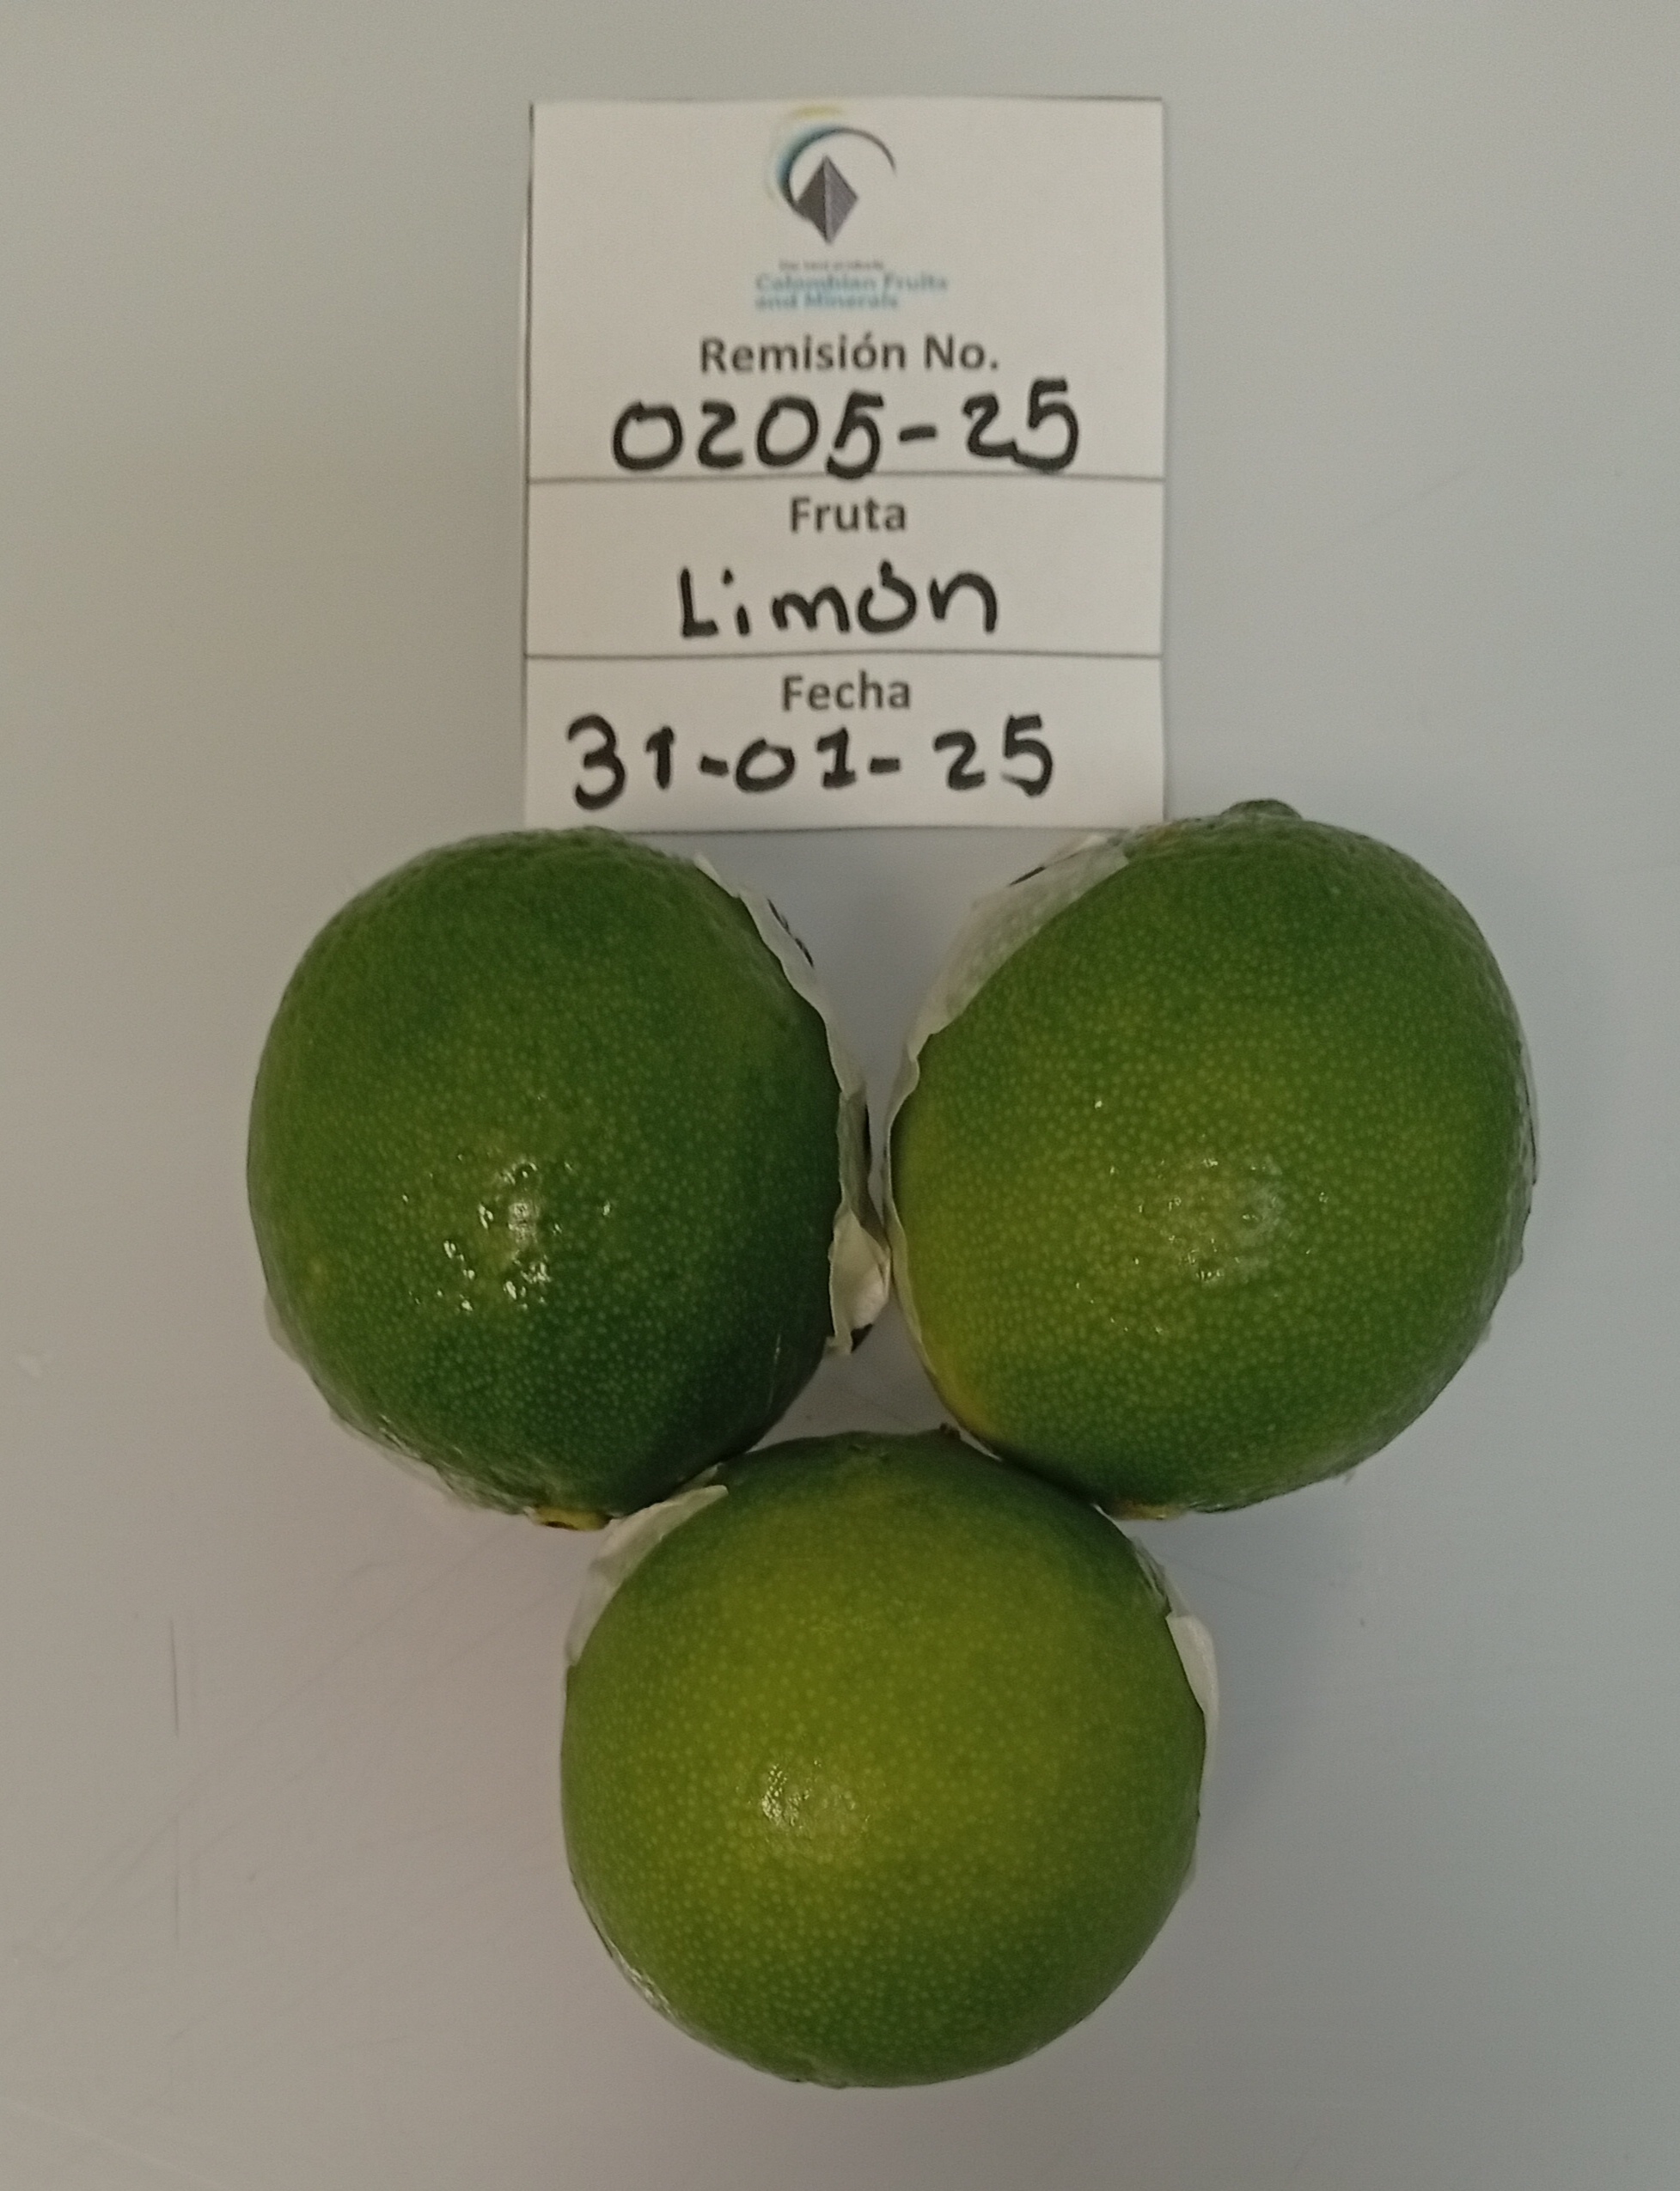 Colombian Fruits
and Minerals
Remisión No.
0205-25
Fruta
Limón
Fecha
31-01-25